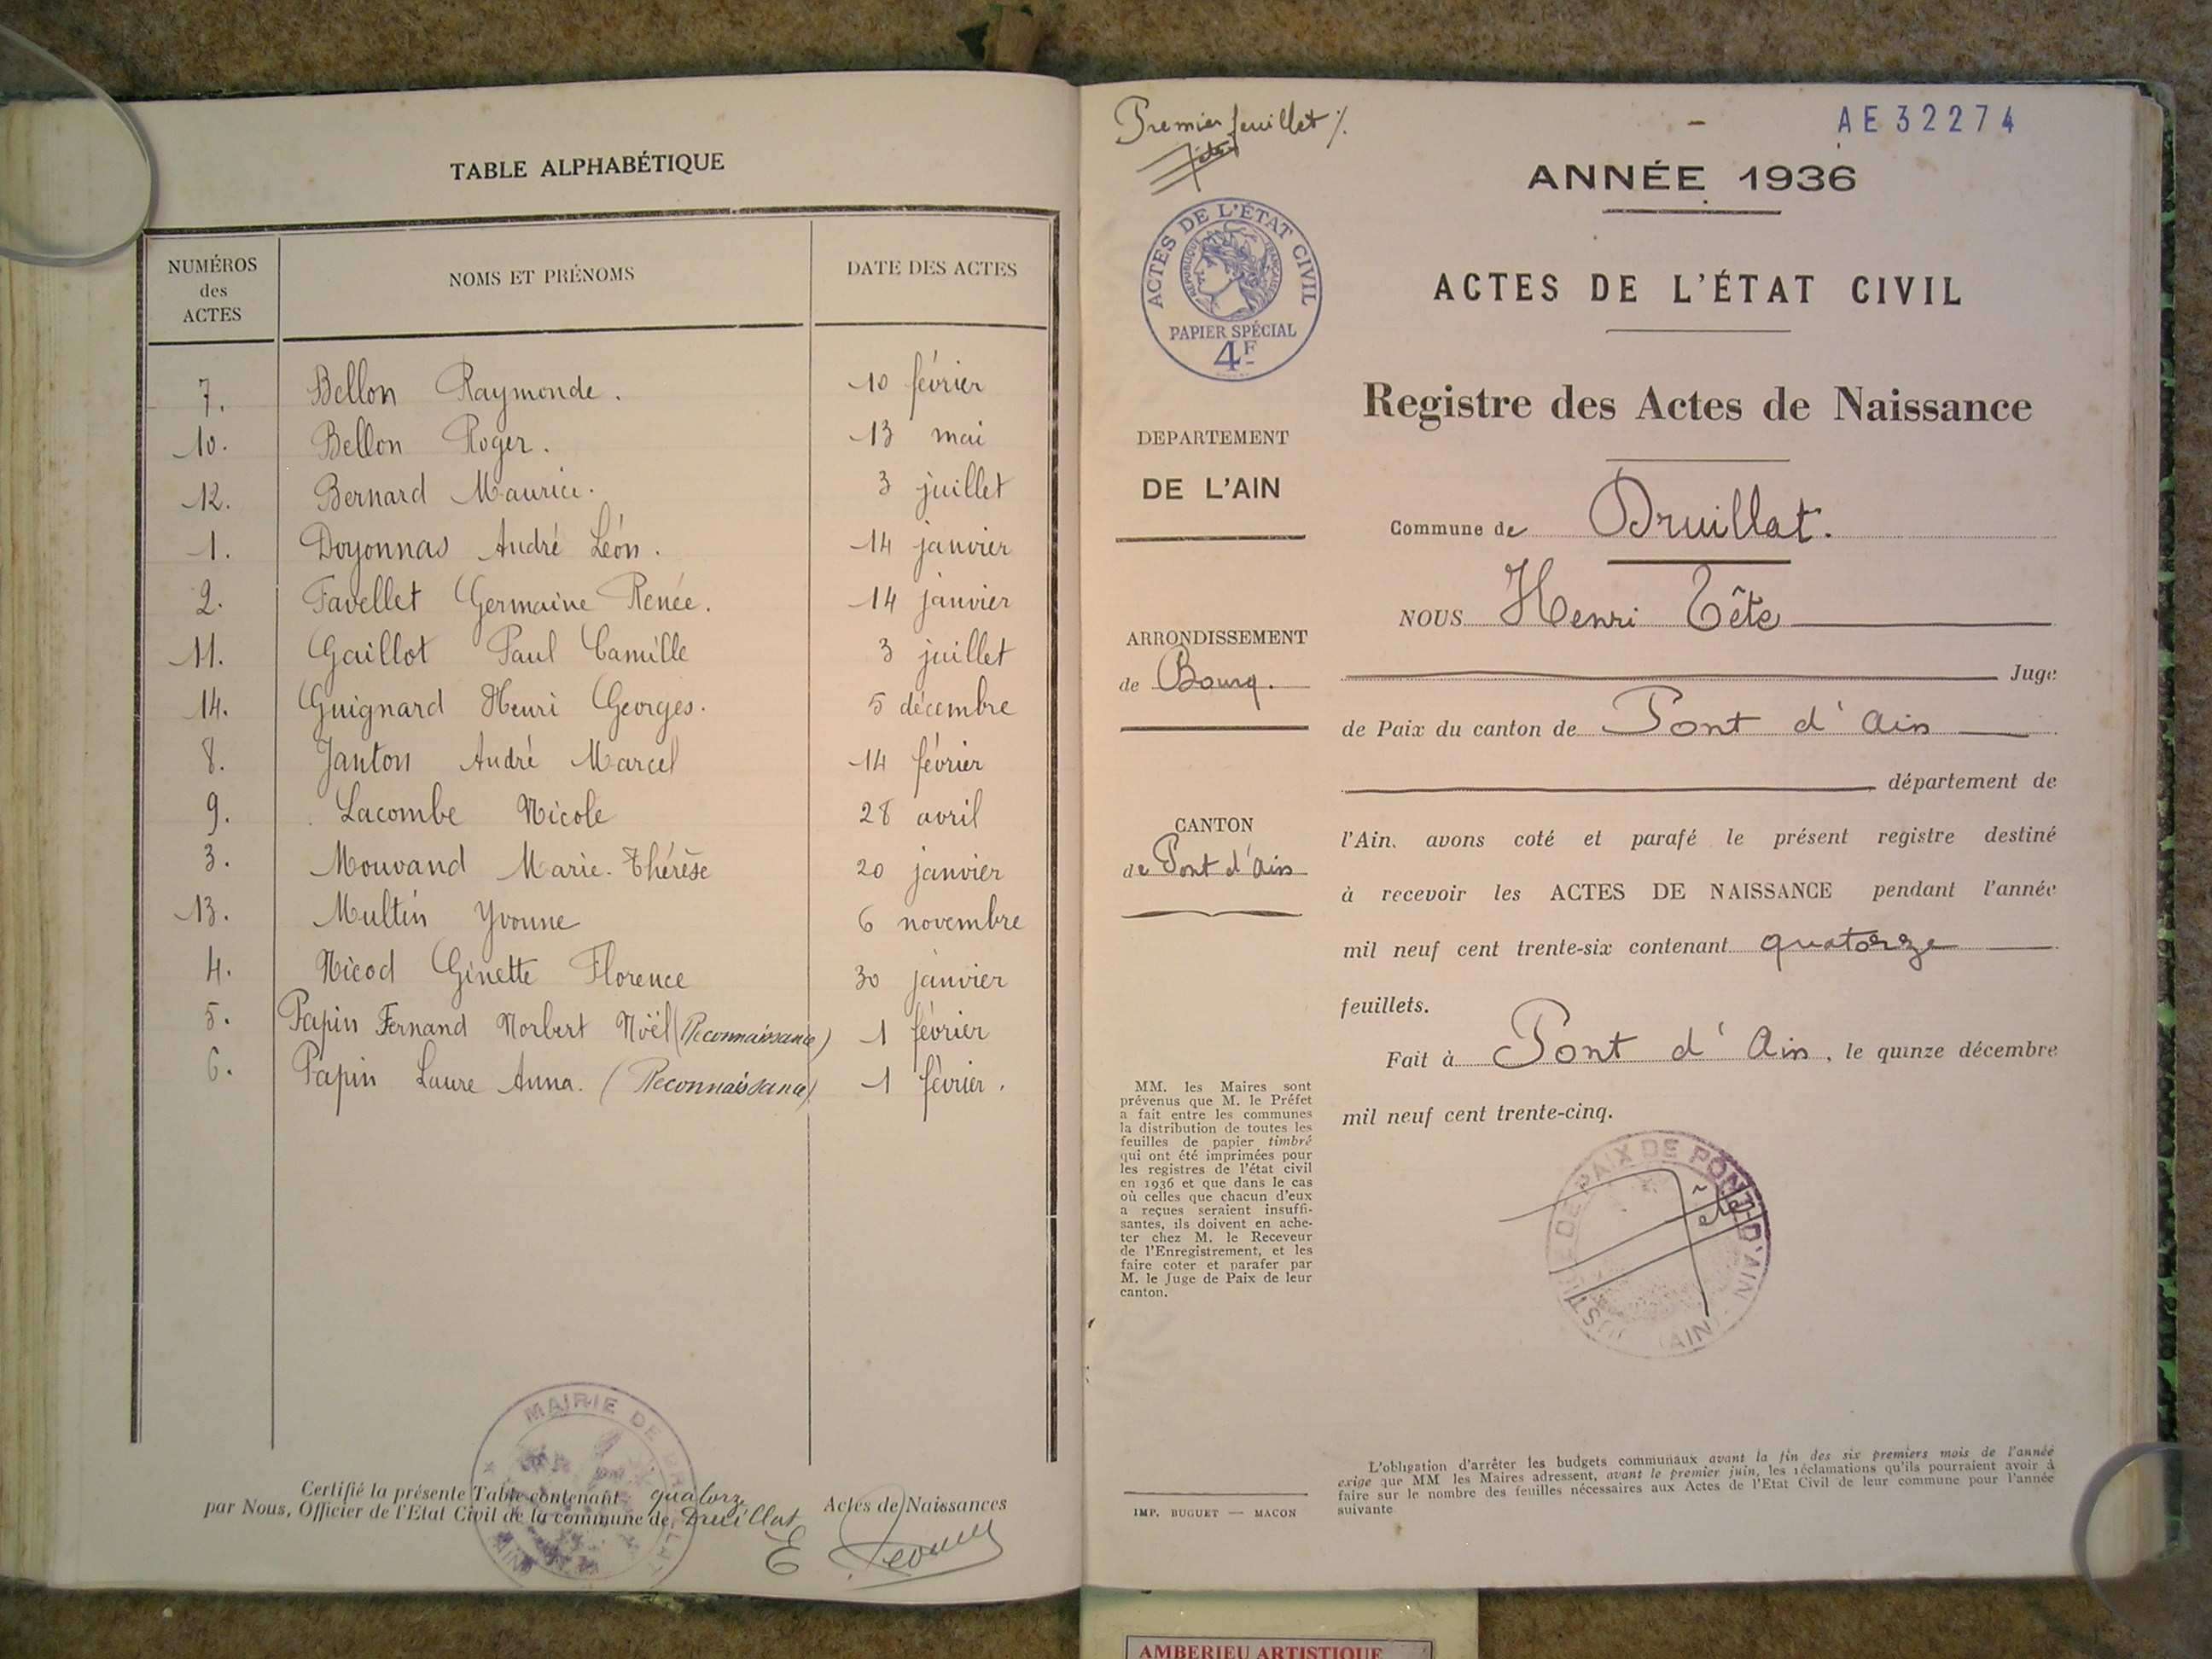 TABLE ALPHABÉTIQUE
NUMÉROS
des
ACTES
NOMS ET PRÉNOMS
DATE DES ACTES
7. Bellon Raymonde. 10 février
10. Bellon Roger. 13 mai
12. Bernard Maurice. 3 juillet
1. Doyonnas André Léon. 14 janvier
2. Favellet Germaine Renée. 14 janvier
11. Gaillot Paul Camille 3 juillet
14. Guignard Henri Georges. 5 décembre
8. Janton André Marcel 14 février
9. Lacombe Nicole 28 avril
3. Mouvand Marie-Thérèse 20 janvier
13. Multin Yvonne 6 novembre
4. Nicod Ginette Florence 30 janvier
5. Papin Fernand Norbert Noël (Reconnaissance) 1 février
6. Papin Laure Anna. (Reconnaissance) 1 février.
MAIRIE DE DRUILLAT
AIN
Certifié la présente Table contenant quatorze Actes de Naissances
par Nous, Officier de l'Etat Civil de la commune de Druillat
Premier feuillet
Tête
AE32274
ANNÉE 1936
ACTES DE L'ÉTAT CIVIL
RÉPUBLIQUE FRANÇAISE
PAPIER SPÉCIAL
4F
ACTES DE L'ÉTAT CIVIL
Registre des Actes de Naissance
DEPARTEMENT
DE L'AIN
Commune de Druillat.
NOUS Henri Tête
ARRONDISSEMENT
de Bourg.
Juge
de Paix du canton de Pont d'Ain
département de
CANTON
de Pont d'Ain
l'Ain, avons coté et parafé le présent registre destiné
à recevoir les ACTES DE NAISSANCE pendant l'année
mil neuf cent trente-six contenant quatorze
feuillets.
Fait à Pont d'Ain, le quinze décembre
mil neuf cent trente-cinq.
MM. les Maires sont
prévenus que M. le Préfet
a fait entre les communes
la distribution de toutes les
feuilles de papier timbré
qui ont été imprimées pour
les registres de l'état civil
en 1936 et que dans le cas
où celles que chacun d'eux
a reçues seraient insuffi-
santes, ils doivent en ache-
ter chez M. le Receveur
de l'Enregistrement, et les
faire coter et parafer par
M. le Juge de Paix de leur
canton.
JUSTICE DE PAIX DE PONT-D'AIN
(AIN)
Tête
L'obligation d'arrêter les budgets communaux avant la fin des six premiers mois de l'année
exige que MM les Maires adressent, avant le premier juin, les réclamations qu'ils pourraient avoir à
faire sur le nombre des feuilles nécessaires aux Actes de l'Etat Civil de leur commune pour l'année
suivante
IMP. BUGUET — MACON
AMBERIEU ARTISTIQUE